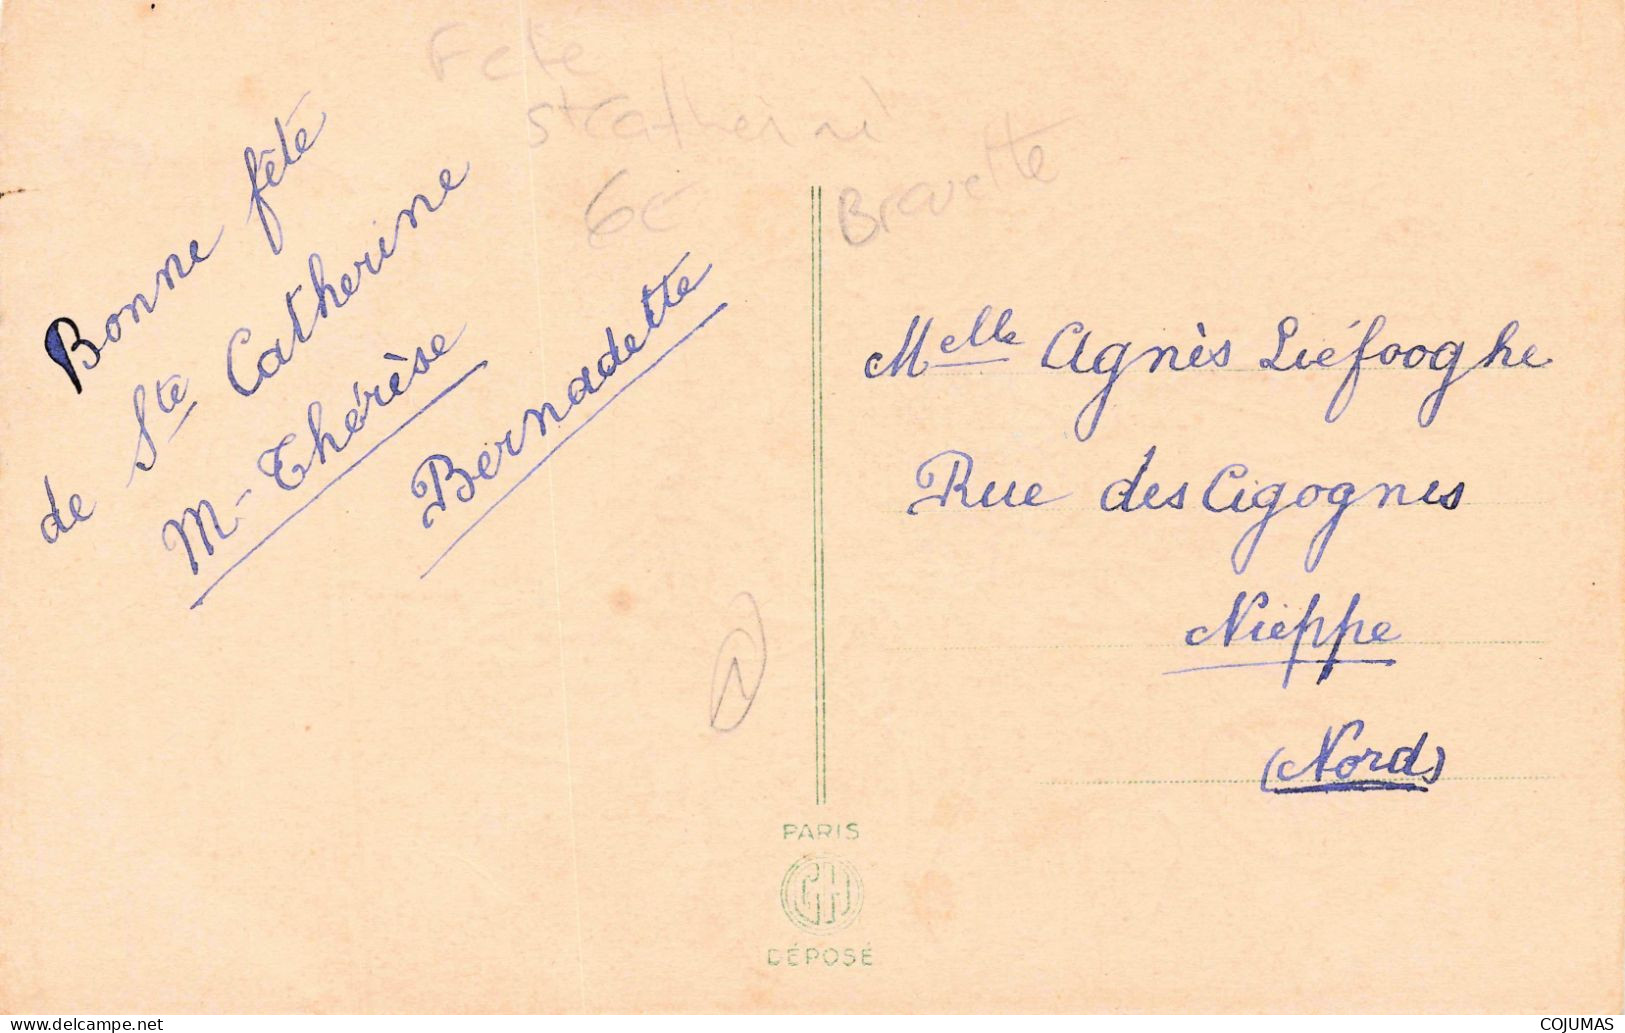 Fête
St Catherine
6€
Bonne fête
de Ste Catherine
M-Thérèse
Bernadette
Melle Agnès Liéfooghe
Rue des Cigognes
Nieppe
(Nord)
PARIS
GH
DÉPOSÉ
COJUMAS